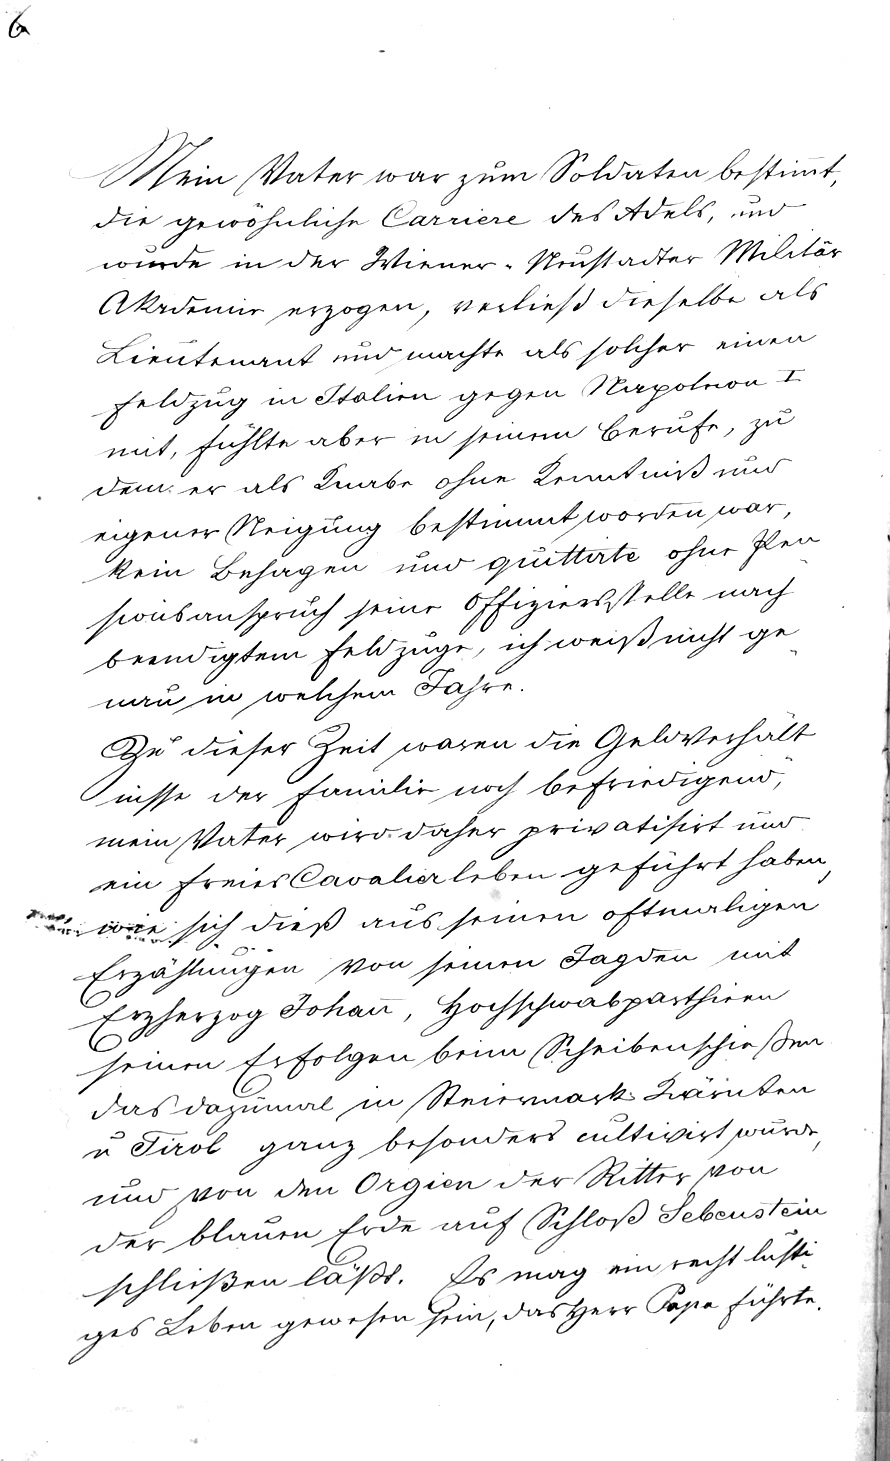 6
Mein Vater war zum Soldaten bestim̅t,
die gewöhnliche Carriere des Adels, und
wurde in der Wiener-Neustadter Militär
Akademie erzogen, verließ dieselbe als
Lieutenant und machte als solcher einen
Feldzug in Italien gegen Napoleon I
mit, fühlte aber in seinem Berufe, zu
dem er als Knabe ohne Kenntniß und
eigener Neigung bestimmt worden war,
kein Behagen und quittirte ohne Pen
sionsanspruch seine Offiziersstelle nach
beendigtem Feldzuge, ich weiß nicht ge
nau in welchem Jahre.
Zu dieser Zeit waren die Geldverhält
nisse der Familie noch befriedigend,
mein Vater wird daher privatisirt und
ein freies Cavalierleben geführt haben,
wie sich dieß aus seinen oftmaligen
Erzählungen von seinen Jagden mit
Erzherzog Johan̅, Hochschwabparthieen
seinen Erfolgen beim Scheibenschießen
das dazumal in Steiermark Kärnten
u Tirol ganz besonders cultivirt wurde,
und von den Orgien der Ritter von
der blauen Erde auf Schloß Sebenstein
schließen läßt. Es mag ein recht lusti
ges Leben gewesen sein, das Herr Papa führte.